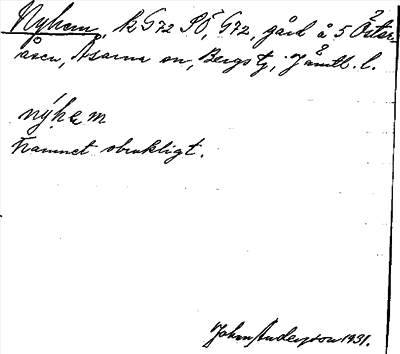 Nyhem, k G72 SÖ, G72, gård å 5 Öster-
åsen, Åsarne sn, Bergs tg, Jämtl. l.
nýhem
Namnet obrukligt.
John Anderson 1931.